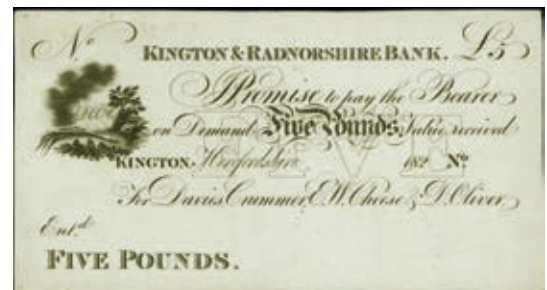 No KINGTON & RADNORSHIRE BANK. £5
I Promise to pay the Bearer
on Demand Five Pounds Value received
KINGTON. Herefordshire 182 No
For Davies, Crummer, E.W. Cheese & D. Oliver
Entd.
FIVE POUNDS.